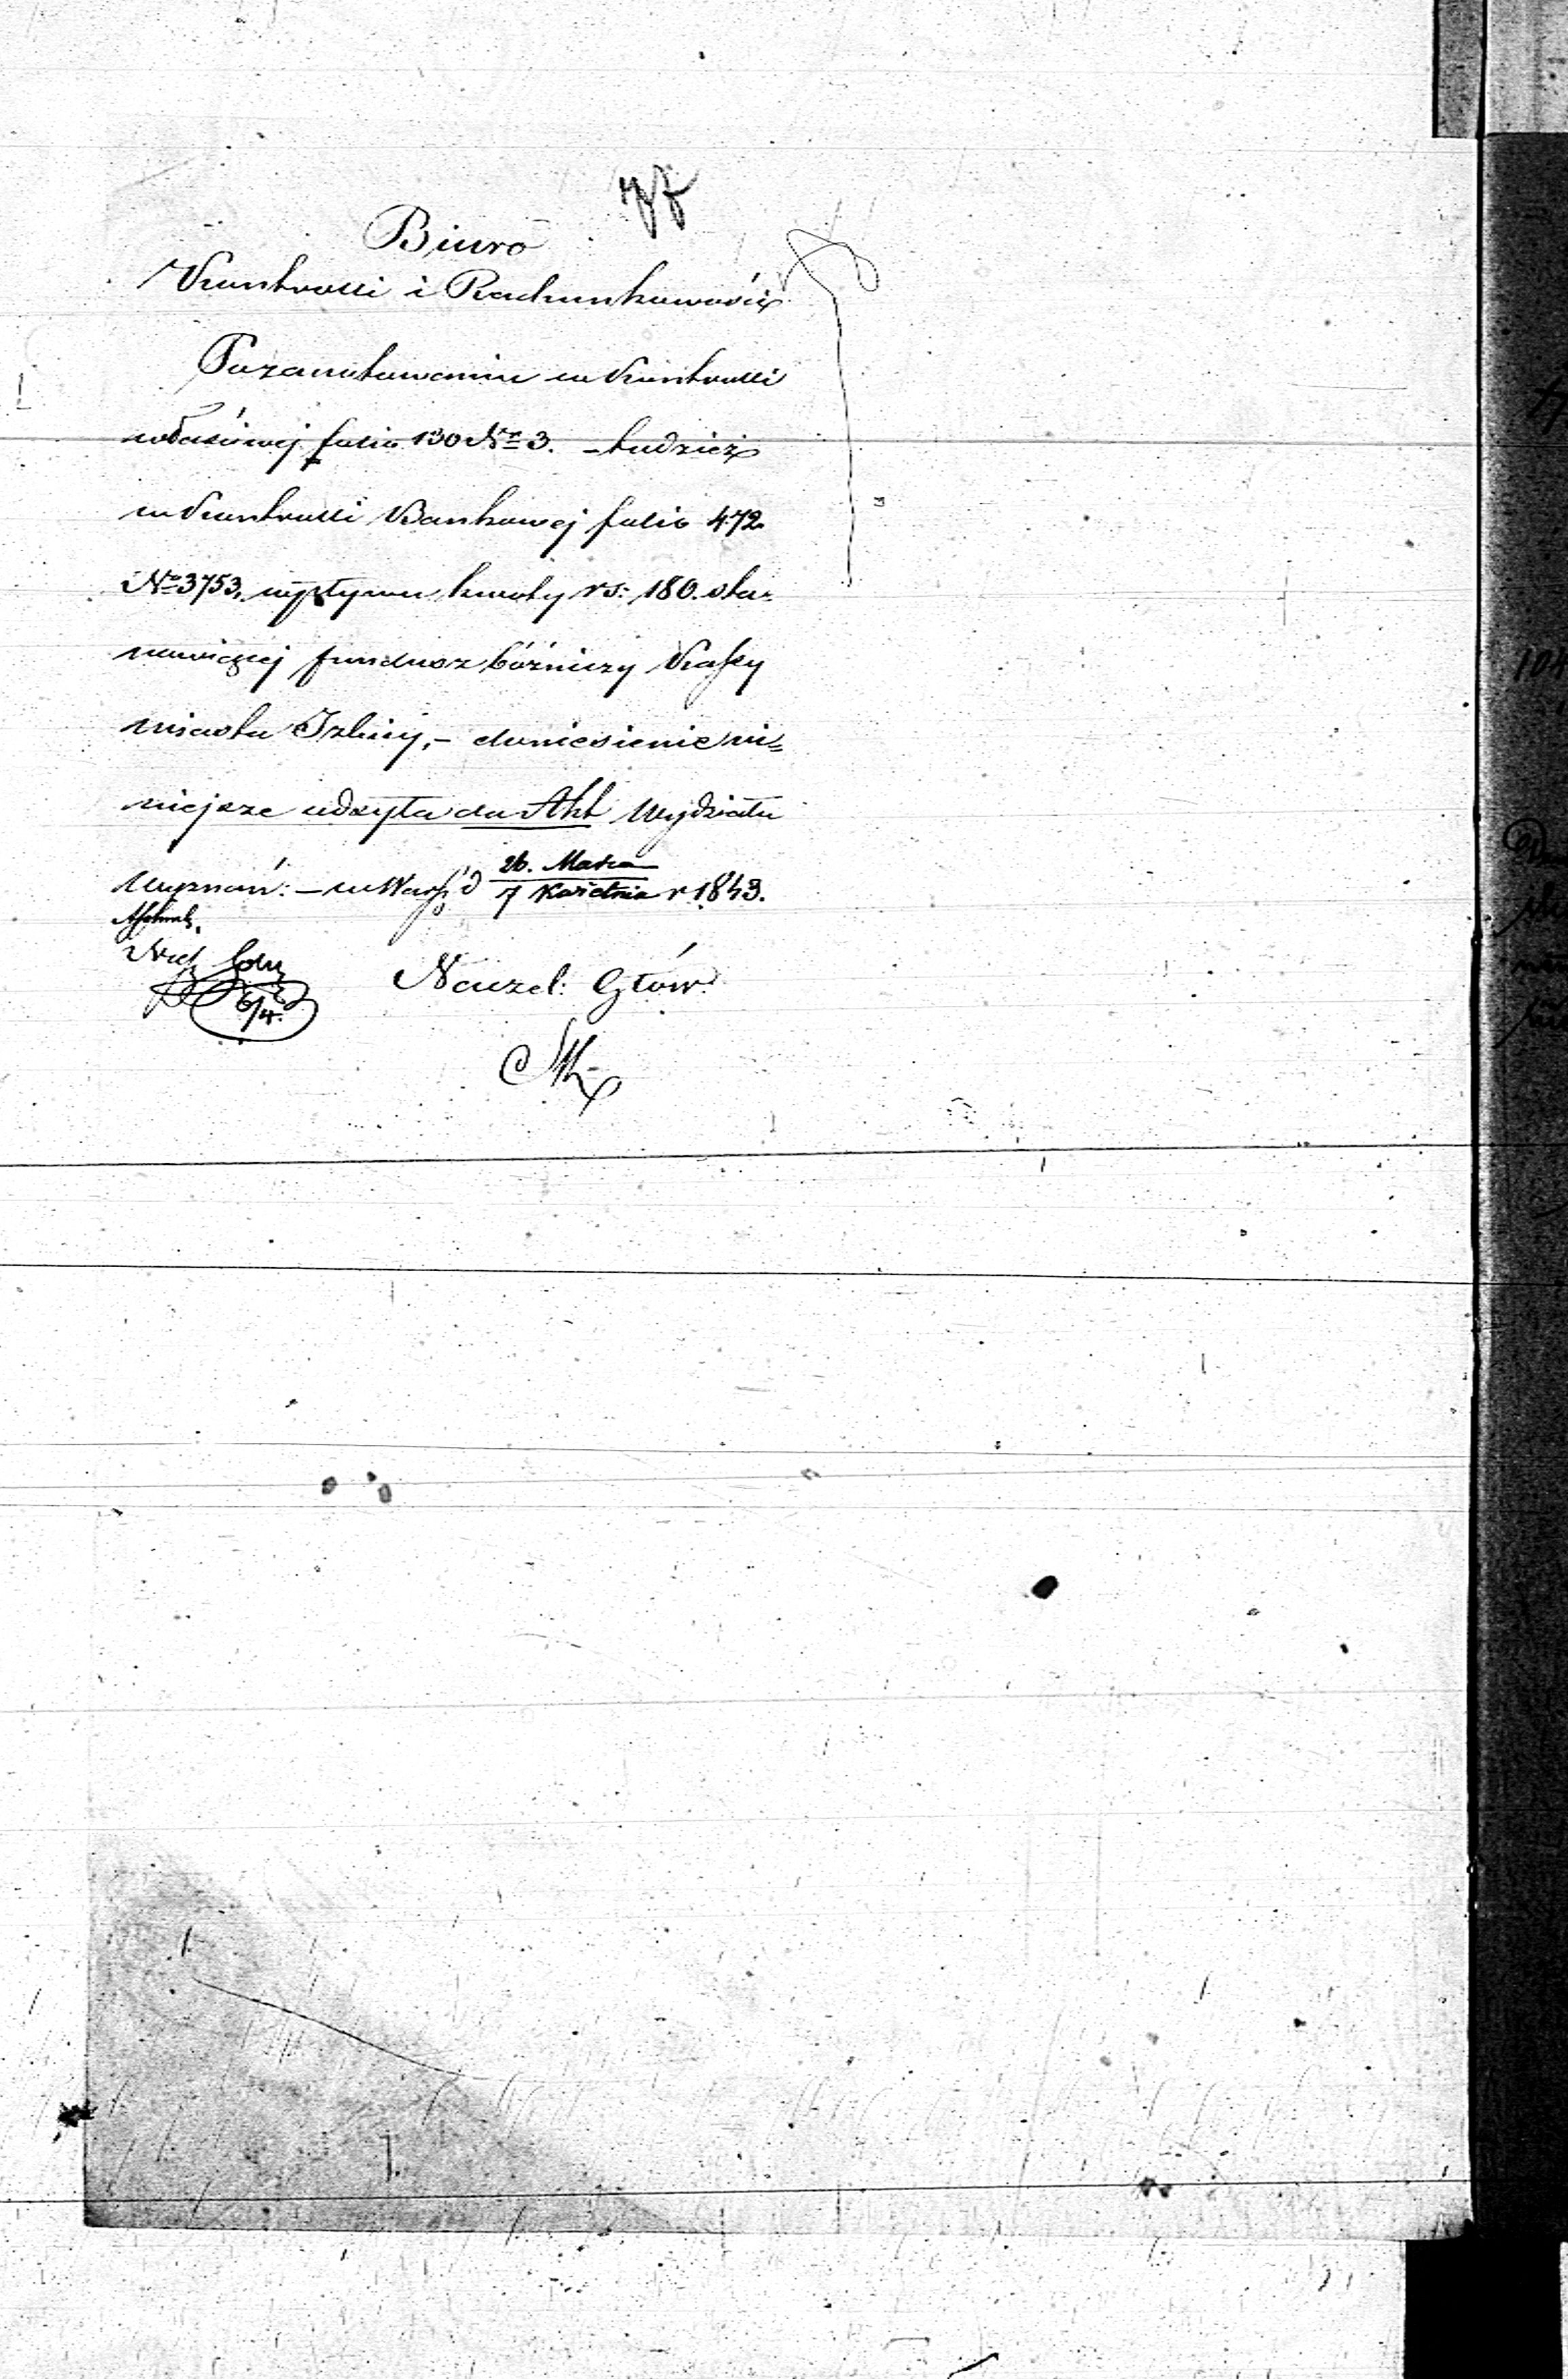 Biuro
Kontrolli i Rachunkowości
Po zanotowaniu w Kontrolli
właściwej folio 130 Nr 3. – tudzież
w Kontrolli Bankowej folio 472
Nr 3753, wpływu kwoty rs: 180. sta=
nowiącej fundusz bóżniczy Kassy
miasta Izbicy, – doniesienie ni=
niejsze odsyła do Akt Wydziału
Wyznań: – w Warsz: d 26. Marca
7 Kwietnia r 1843.
6/4.
Naczel: Głów: